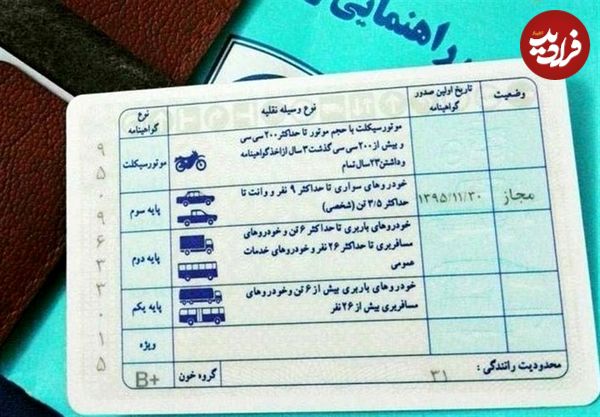 راهنمایی
فرارید
وضعیت
تاریخ اولین صدور
گواهینامه
نوع وسیله نقلیه
نوع
گواهینامه
موتورسیکلت با حجم موتور تا حداکثر ۲۰۰ سی سی
و بیش از ۲۰۰ سی سی گذشت ۳ سال از اخذ گواهینامه
و داشتن ۲۳ سال تمام
موتورسیکلت
مجاز
۱۳۹۵/۱۱/۳۰
خودروهای سواری تا حداکثر ۹ نفر و وانت تا
حداکثر ۳/۵ تن (شخصی)
پایه سوم
خودروهای باربری تا حداکثر ۶ تن و خودروهای
مسافربری تا حداکثر ۲۶ نفر و خودروهای خدمات
عمومی
پایه دوم
خودروهای باربری بیش از ۶ تن و خودروهای
مسافربری بیش از ۲۶ نفر
پایه یکم
ویژه
محدودیت رانندگی :
۳۱
گروه خون
B+
9
5
0
9
6
3
3
0
1
5